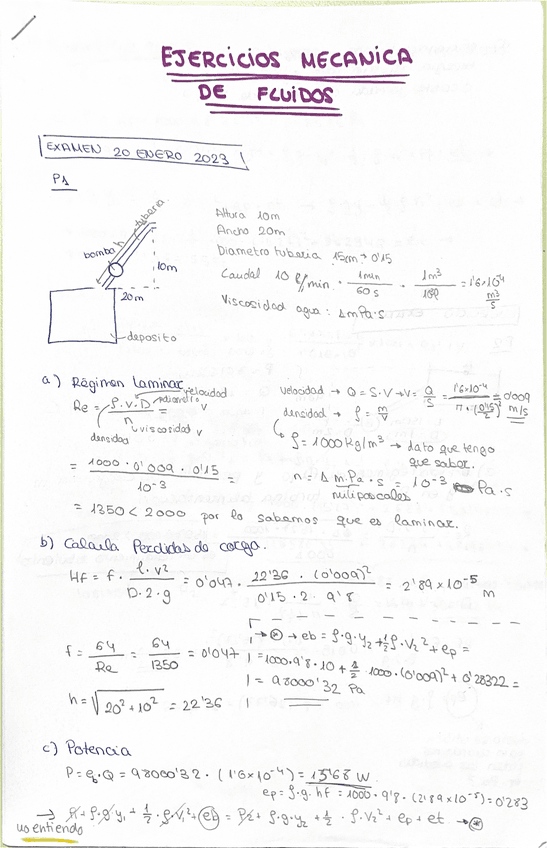 EJERCICIOS MECANICA
DE FLUIDOS
EXAMEN 20 ENERO 2023
P1
tuberia
bomba h
10m
20m
deposito
Altura 10m
Ancho 20m
Diametro tuberia 15cm → 0'15
Caudal 10 l/min · 1min/60s · 1m³/10³l = 1'6×10⁻⁴ m³/s
Viscosidad agua: 1 mPa·s
a) Régimen Laminar
Re = ρ·v·D/η
velocidad
diametro
viscosidad
densidad
= 1000 · 0'009 · 0'15 / 10⁻³ =
= 1350 < 2000 por lo sabemos que es laminar.
velocidad → Q = S·V → V = Q/S = 1'6×10⁻⁴ / π·(0'15/2)² = 0'009 m/s
densidad → ρ = m/V
ρ = 1000 kg/m³ → dato que tengo
que saber.
η = 1 m.Pa·s = 10⁻³ Pa·s
milipascales
b) Calcula Perdidas de carga.
Hf = f · l·v² / D·2·g = 0'047 · 22'36 · (0'009)² / 0'15 · 2 · 9'8 = 2'89×10⁻⁵ m
f = 64/Re = 64/1350 = 0'047
h = √20² + 10² = 22'36
→ ⊛ → eb = ρ·g·y₂ + ½ρ·V₂² + ep =
= 1000·9'8·10 + ½·1000·(0'009)² + 0'28322 =
= 98000'32 Pa
c) Potencia
P = eb·Q = 98000'32 · (1'6×10⁻⁴) = 15'68 W
ep = ρ·g·hf = 1000·9'8·(2'89×10⁻⁵) = 0'283
→ P1 + ρ·g·y₁ + ½·ρ·V₁² + eb = P2 + ρ·g·y₂ + ½·ρ·V₂² + ep + et → ⊛
no entiendo